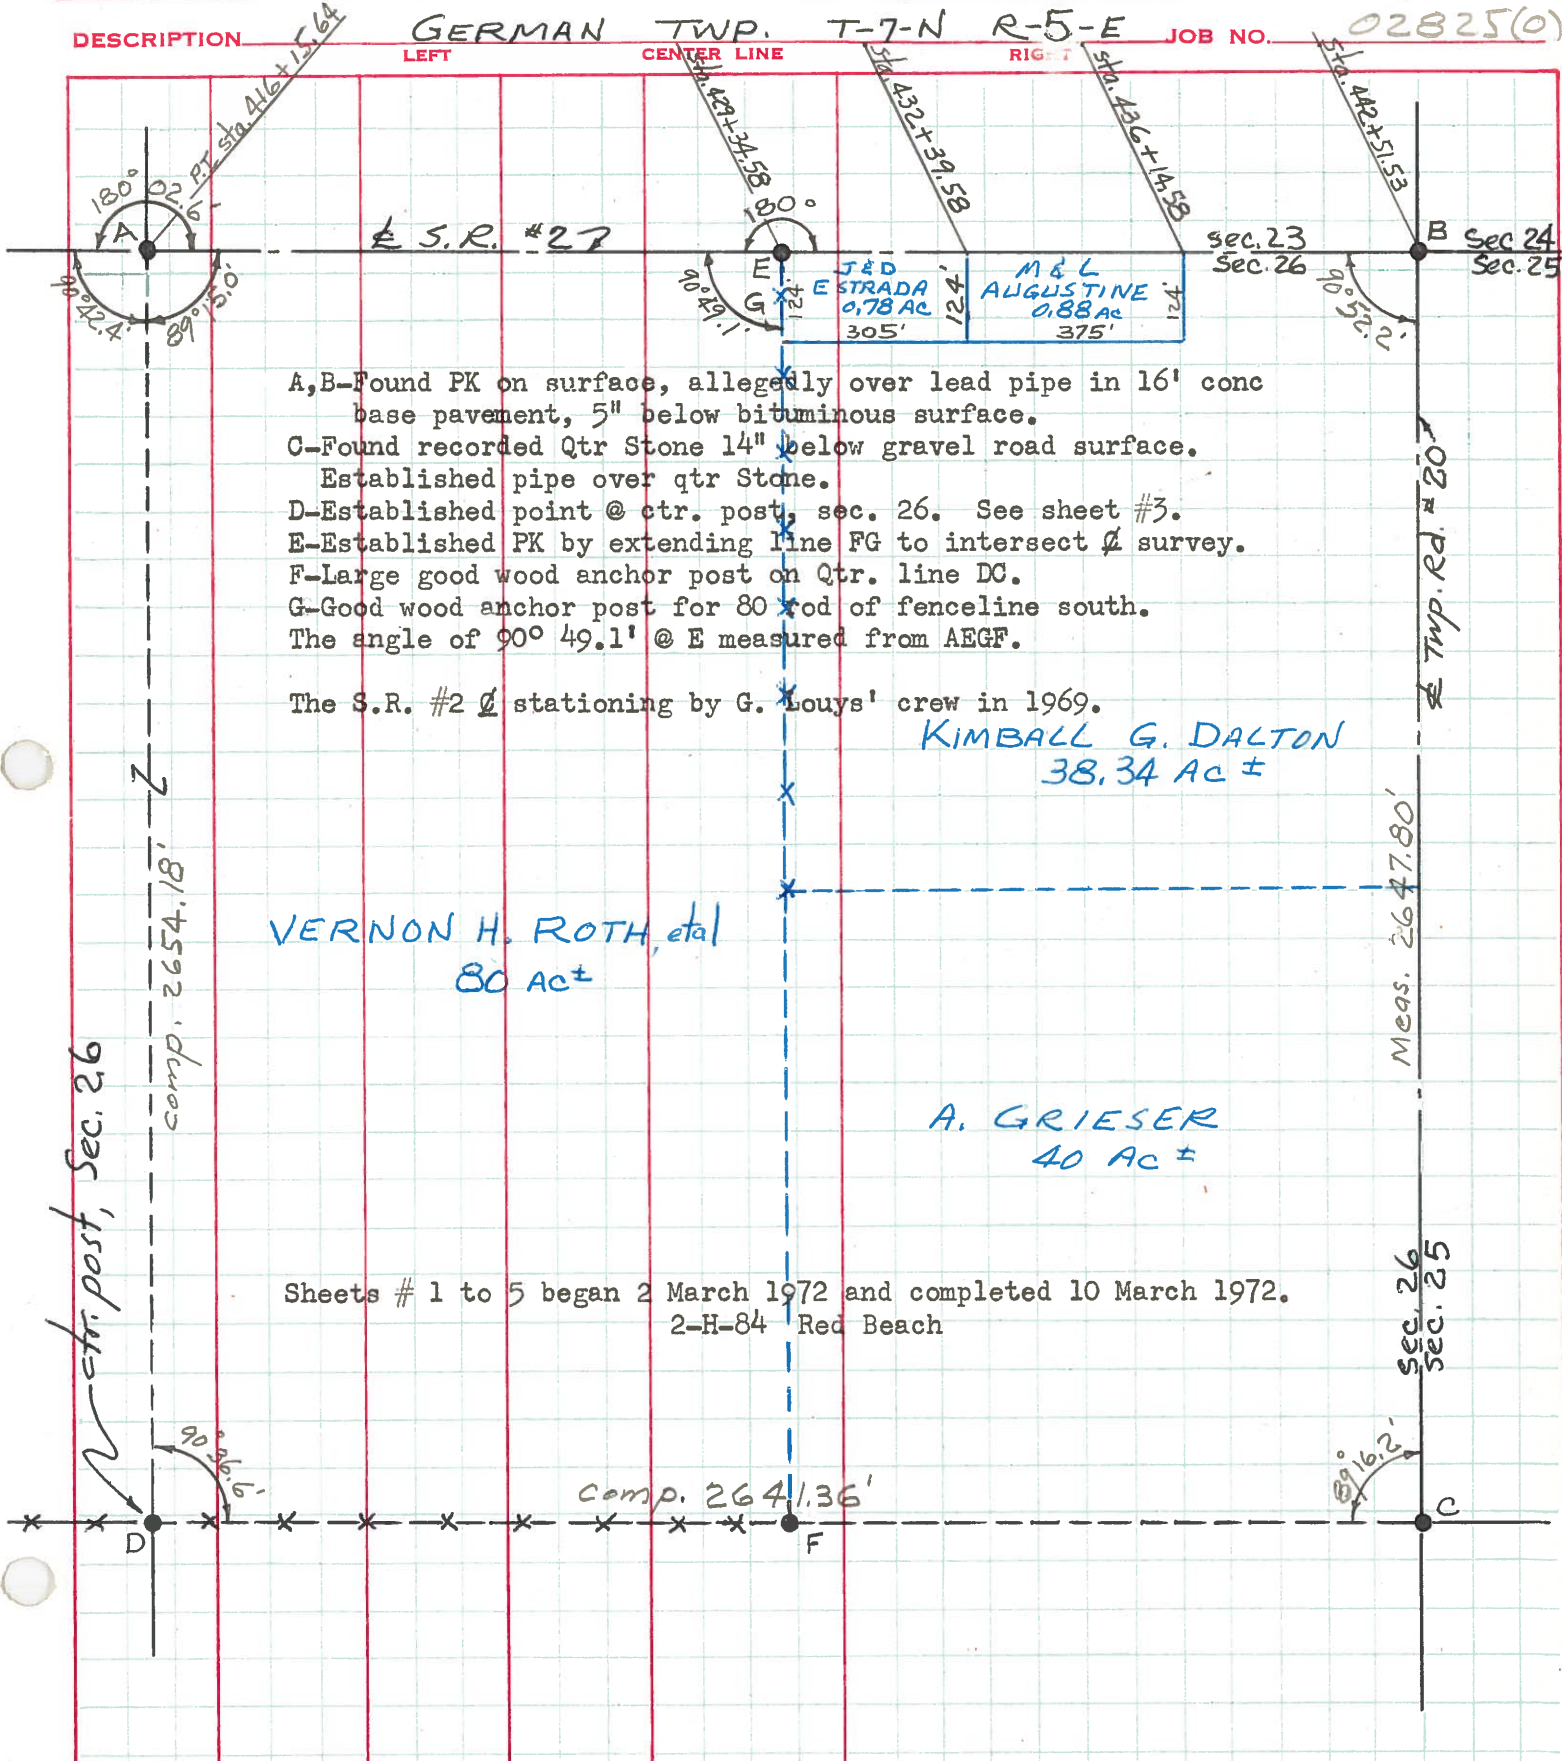 DESCRIPTION GERMAN TWP. T-7-N R-5-E JOB NO. 02825(0)
LEFT CENTER LINE RIGHT
P.I. sta. 416+15.64
sta. 429+34.58
sta. 432+39.58
sta. 436+14.58
sta. 442+51.53
180° 02.6'
A
℄ S.R. #2
180°
E
G
B
sec. 23
Sec. 26
Sec 24
Sec. 25
90°42.4'
89°15.0'
90°49.1'
90°52.2'
124'
J & D
ESTRADA
0.78 AC
305'
124'
M & L
AUGUSTINE
0.88 Ac
375'
124'
A,B-Found PK on surface, allegedly over lead pipe in 16' conc
base pavement, 5" below bituminous surface.
C-Found recorded Qtr Stone 14" below gravel road surface.
Established pipe over qtr Stone.
D-Established point @ ctr. post, sec. 26. See sheet #3.
E-Established PK by extending line FG to intersect ℄ survey.
F-Large good wood anchor post on Qtr. line DC.
G-Good wood anchor post for 80 rod of fenceline south.
The angle of 90° 49.1' @ E measured from AEGF.
The S.R. #2 ℄ stationing by G. Louys' crew in 1969.
℄ Twp. Rd. #20
KIMBALL G. DALTON
38.34 Ac ±
comp. 2654.18'
Meas. 2647.80'
VERNON H. ROTH, etal
80 Ac ±
A. GRIESER
40 Ac ±
ctr. post, Sec. 26
Sheets # 1 to 5 began 2 March 1972 and completed 10 March 1972.
2-H-84 Red Beach
Sec. 26
Sec. 25
90°36.6'
comp. 2641.36'
89°16.2'
D
F
C